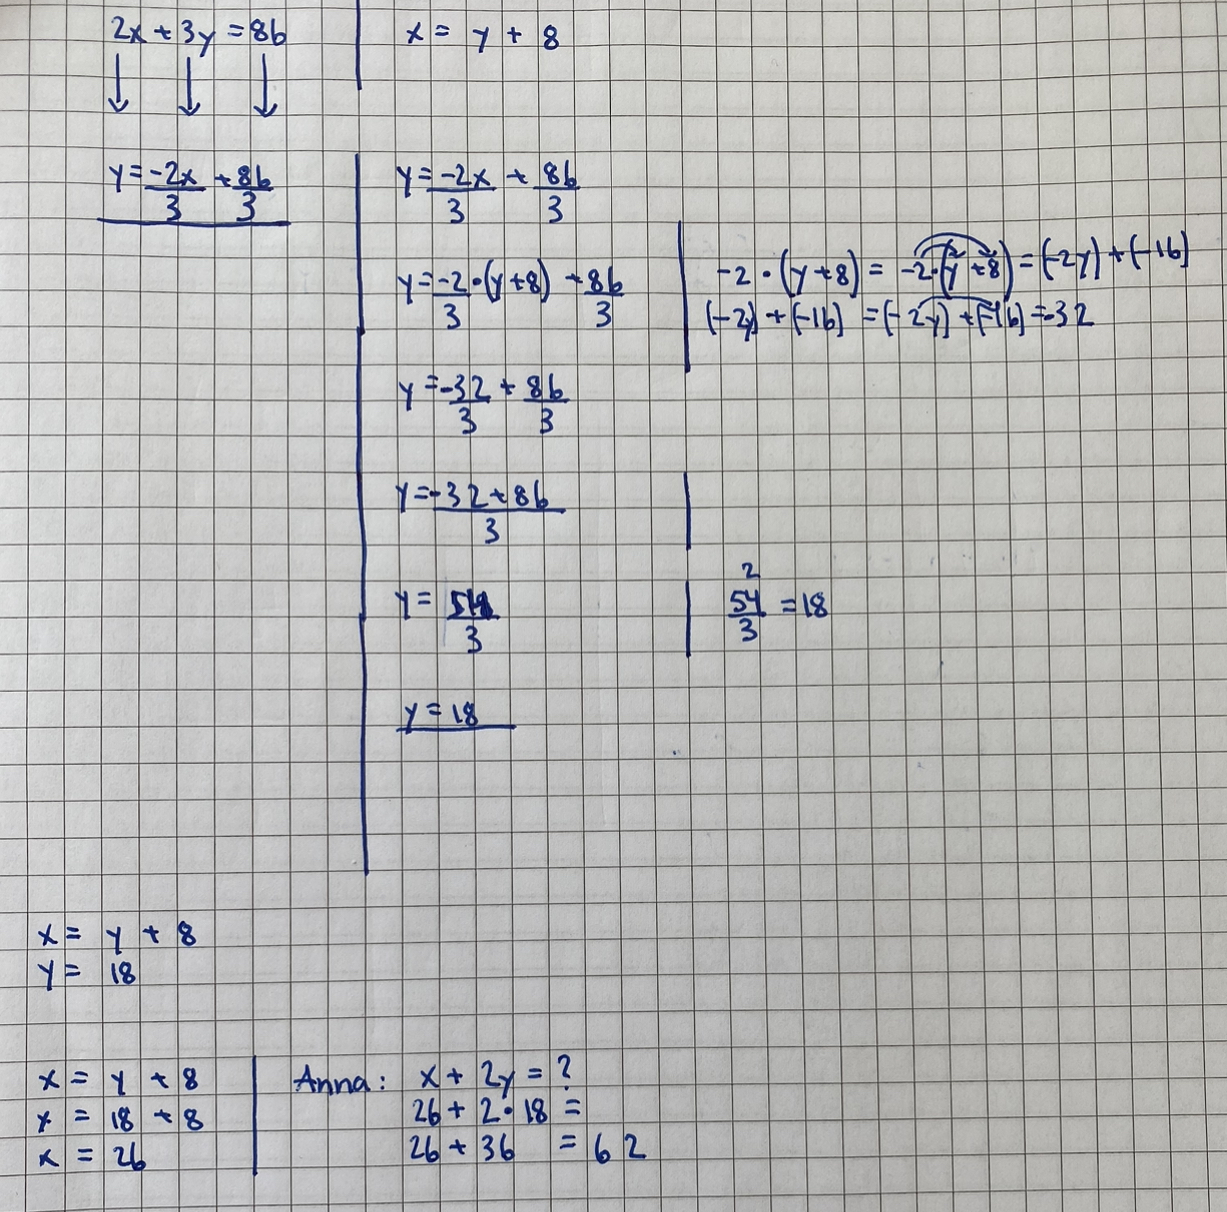 2x + 3y = 86
x = y + 8
↓ ↓ ↓
y = -2x/3 + 86/3
y = -2x/3 + 86/3
y = -2/3 · (y+8) + 86/3
-2 · (y+8) = -2·(y+8) = (-2y) + (-16)
(-2y) + (-16) = (-2y) + (-16) = -32
y = -32/3 + 86/3
y = -32 + 86/3
y = 54/3
2
54/3 = 18
y = 18
x = y + 8
y = 18
x = y + 8
x = 18 + 8
x = 26
Anna: x + 2y = ?
26 + 2·18 =
26 + 36 = 62